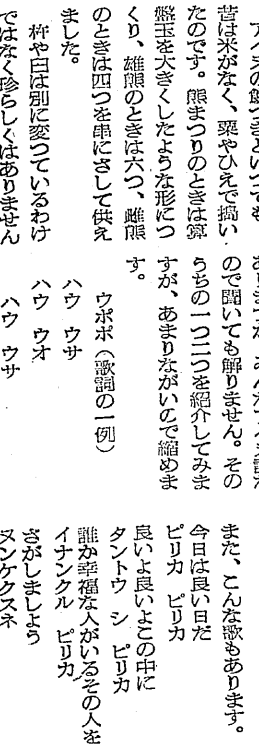 昔は米がなく、粟やひえで搗い
たのです。熊まつりのときは算
盤玉を大きくしたような形につ
くり、雄熊のときは六つ、雌熊
のときは四つを串にさして供え
ました。
杵や臼は別に変つているわけ
ではなく珍らしくはありません
ので聞いても解りません。その
うちの一つ二つを紹介してみま
すが、あまりながいので縮めま
す。
ウポポ（歌詞の一例）
ハウ ウサ
ハウ ウオ
ハウ ウサ
また、こんな歌もあります。
今日は良い日だ
ピリカ ピリカ
良いよ良いよこの中に
タントウ シ ピリカ
誰か幸福な人がいるその人を
イナンクル ピリカ
さがしましよう
ヌンケクスネ